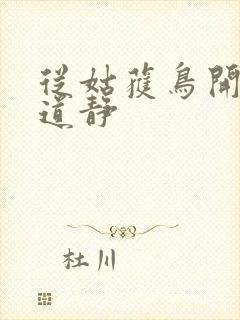 從姑蒦鳥開
道静
杜川